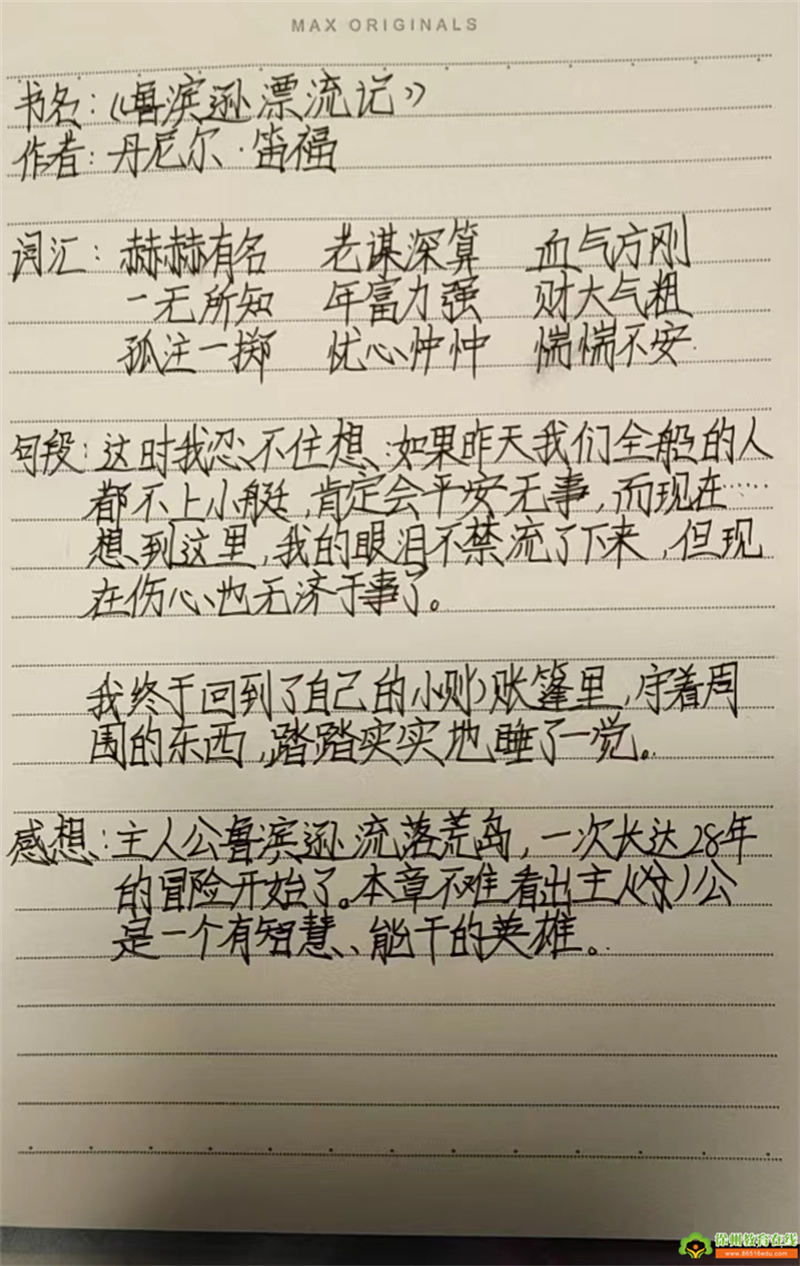 MAX ORIGINALS
书名：《鲁滨逊漂流记》
作者：丹尼尔·笛福
词汇：赫赫有名 老谋深算 血气方刚
一无所知 年富力强 财大气粗
孤注一掷 忧心忡忡 惴惴不安
句段：这时我忍不住想，如果昨天我们全船的人
都不上小艇，肯定会平安无事，而现在……
想到这里，我的眼泪不禁流了下来，但现
在伤心也无济于事了。
我终于回到了自己的小账篷里，守着周
围的东西，踏踏实实地睡了一觉。
感想：主人公鲁滨逊流落荒岛，一次长达28年
的冒险开始了。本章不难看出主人公
是一个有智慧、能干的英雄。
徐州教育在线
www.86516edu.com